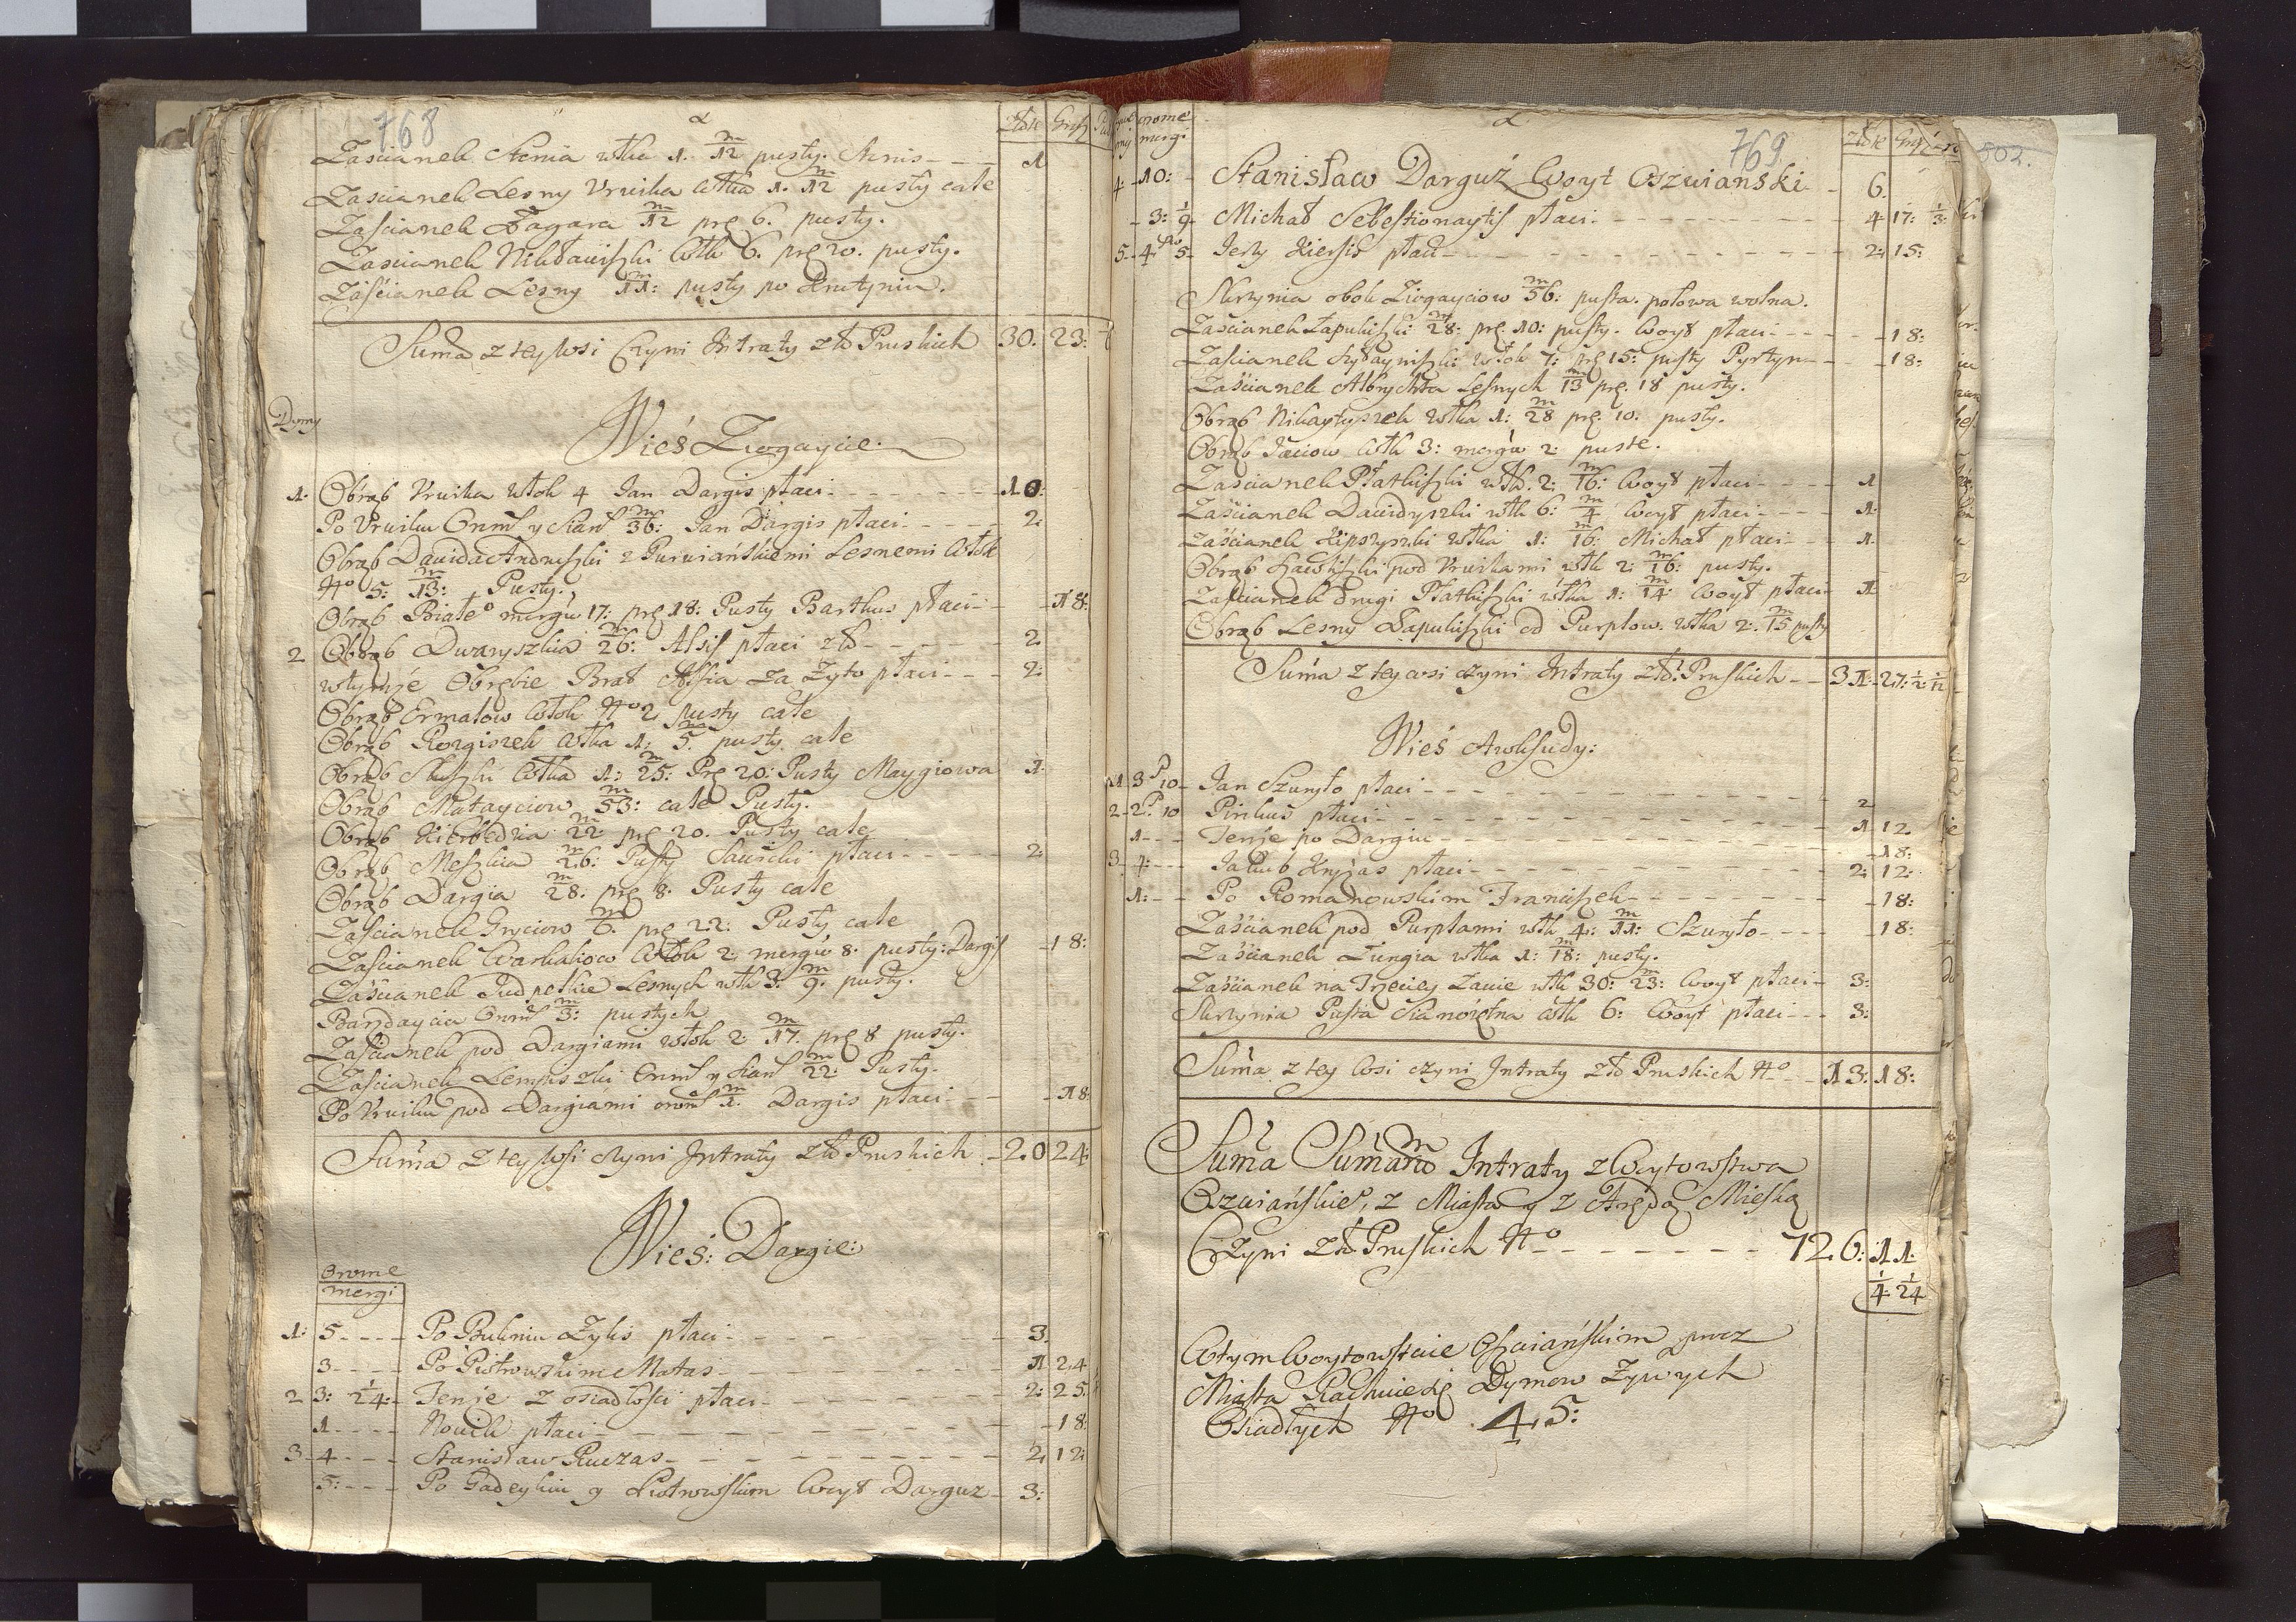 768
Złote Grosz
Zascianek Stenia włka 1. m/12 pusty. Stenis - - - 1
Zascianek Lesny Uruika włka 1. m/12 pusty cale
Zascianek Zagara m/12 prę 6. pusty.
Zascianek Nikławiszki włk 6. prę 20. pusty.
Zaścianek Lesny m/11: pusty po Krutyniu.
Suma z tey wsi Czyni Intraty zło Pruskich 30. 23:
Dymy
Wieś Ziogaycie.
1. Obrąb Uruika włok 4 Jan Dargis płaci - - - 10:
Po Uruiku Oroml y Sianl m/36: Jan Dargis płaci - - - 2:
Obrąb Dawida Andruszki z Purwiańskiemi Lesnemi włok
No 5: m/13: Pusty.
Obrąb Białeo mergu 17: prę 18: Pusty Barthus płaci - - 18:
2 Obrąb Dwaryszkia m/26: Alsis płaci zło - - - 2
w tymże Obrębie Brat Alsia za Zyto płaci - - - 2:
Obrąb Ermałow włok No 2, pusty cale
Obrąb Rozgiszek włka 1: m/5. pusty cale
Obrąb Skuszki włka 1: m/25: Prę 20: Pusty Maygiowa 1:
Obrąb Matayciow m/53: cale Pusty.
Obrąb Kierbedzia m/22 prę 20. Pusty cale
Obrąb Meszkia m/26: Pusty Sawicki płaci - - - 2:
Obrąb Dargia m/28. prę 8. Pusty cale
Zascianek Gryciow m/6. prę 22: Pusty cale
Zascianek Warkalow włok 2, mergów 8. pusty: Dargis - 18:
Zaścianek Judpetkie Lesnych włk 3. m/9. pusty.
Bardaycia Oroml m/3: pustych
Zascianek pod Dargiami włok 2 m/17. prę 8 pusty.
Zascianek Lempiszki Oroml y sianl m/22: Pusty.
Po Uruiku pod Dargiami oroml m/1. Dargis płaci - - - 18:
Suma z tey Wsi czyni Intraty zło Pruskich - 20 24:
Wieś: Dargie:
Orome
mergi
1: 5 - - - Po Bukniu Zylis płaci - - - 3.
3 - - - Po Piotrowskim Matas - - - 1 24
2 3: 1/24: - Tenże z osiadłości płaci - - - 2: 25:
1 - - - Nowik płaci - - - 18:
3 - 4 - - - Stanisław Ruczas - - - 2, 12:
5: - - - Po Gadeykiu y Piotrowskim Woyt Darguz - 3:
orome
mergi
769
Złote
502.
4: - 10: - Stanisław Darguż Woyt Oszwianski - 6.
- 3: 1/9 - Michał Sebestionaytis płaci - - - 4 17: 1/3:
5 - 4 5 - Jerzy Kiersis płaci - - - 2: 15:
Skrzynia obok Ziogayciow m/56: pusta. połowa wolna.
Zaścianek Łapukiszki m/28: prę 10: pusty. Woyt płaci - - - 18:
Zascianek Szyłayniszki włok 7: prę 15: pusty Pyrtyn - - - 18:
Zaścianek Albrychta Lesnych m/13 prę. 18 pusty.
Obrąb Nikaptyszek włka 1: m/28 prę. 10: pusty.
Obrąb Jaciow włk 3: mergów 2: puste.
Zascianek Płatkiszki włk. 2: m/16: Woyt płaci - - - 1
Zaścianek Dawidyszki włk 6: m/4 Woyt płaci - - - 1:
Zaścianek Kipszyszki włka 1: m/16: Michał płaci - - 1.
Obrąb Szawkiszki pod Uruikami włk 2: m/16: pusty.
Zascianek drugi Płatkiszki włka 1: m/14: Woyt płaci - 1:
Obrąb Lesny Łapukiszki od Purplow. włka 2: m/15 pusty
Suma z tey wsi czyni Intraty zło. Pruskich - - 31: 27: 1/2: 1/12
Wieś Awksudy:
1 3 P 10 - Jan Szuryło płaci - - - 2
2 - 2 P. 10 Pirikus płaci - - - 1 12
1 - - - Tenże po Dargiu - - - 18:
3 - 4: - - - Jakub Kryzas płaci - - - 2: 12:
1: - - Po Romanowskim Franciszek - - - 18:
Zaścianek pod Purplami włk 4: m/11: Szuryło - - - 18:
Zaścianek Zungia włka 1: m/18: pusty.
Zaścianek na Trzeciey Ławie włk 30: m/23: Woyt płaci - 3:
Skrzynia Pusta Sianożętna włk 6: Woyt płaci - - - 3:
Suma z tey Wsi czyni Intraty zło Pruskich No - - 13: 18:
Suma Sumarum Intraty z Woytowstwa
Oszwiańskieo, z Miasta y z Arędą Mieską
Czyni zło Pruskich No - - - 726: 11.
1/4: 1/24
W tym Woytowstwie Oszwiańskim precz
Miasta Rachuie się Dymow Zywych
Osiadłych No 45: